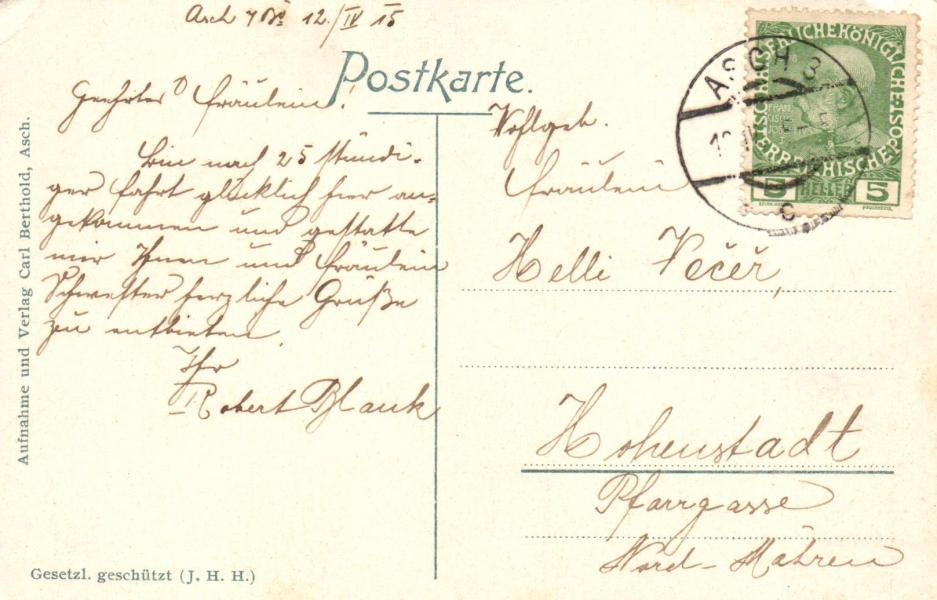 Asch 12./IV 15
Postkarte.
Geehrtes Fräulein!
Bin nach 25 stündi-
ger Fahrt glücklich hier an-
gekommen und gestatte
mir Ihnen und Fräulein
Schwester herzliche Grüße
zu entbieten
Ihr
Robert Blank
Wohlgeb.
Fräulein
Helli Večeř,
Hohenstadt
Pfarrgasse
Nord-Mähren
ASCH 3
5 HELLER 5
Aufnahme und Verlag Carl Berthold, Asch.
Gesetzl. geschützt (J. H. H.)